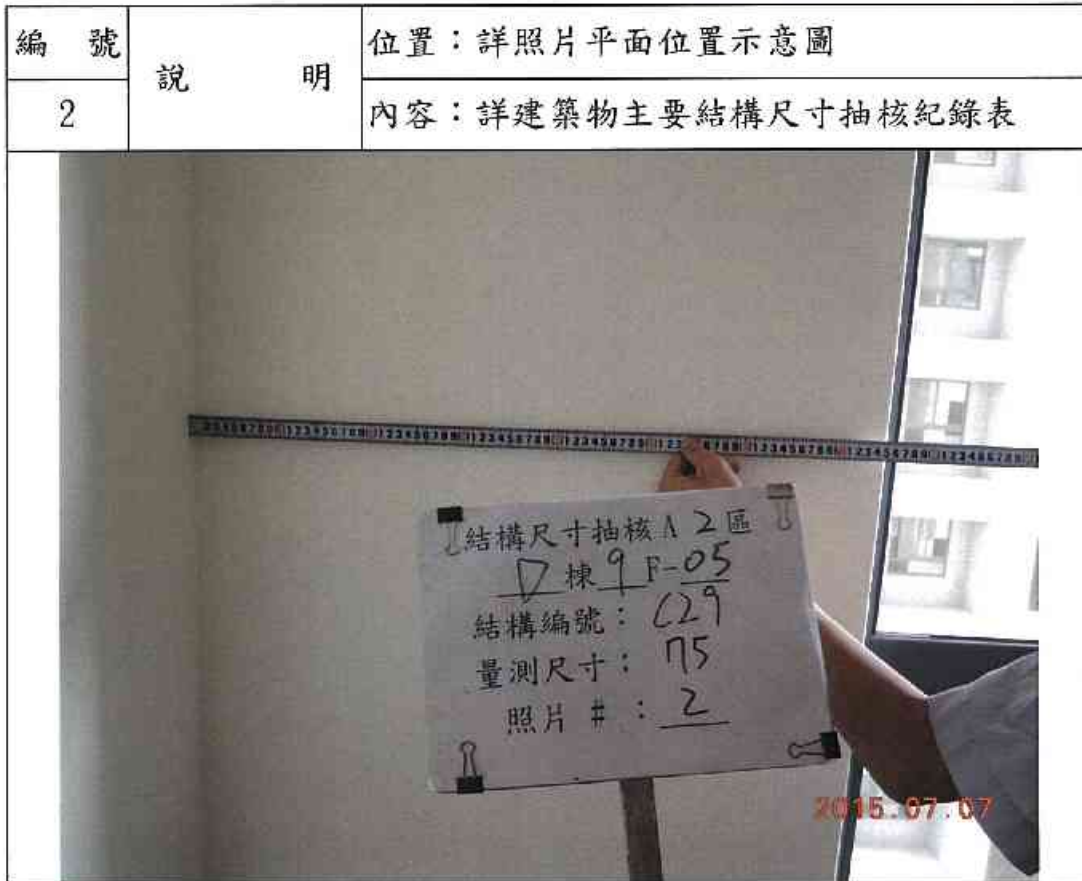 編 號
說 明
位置：詳照片平面位置示意圖
2
內容：詳建築物主要結構尺寸抽核紀錄表
結構尺寸抽核A 2區
D棟9F-05
結構編號：C29
量測尺寸：75
照片 #：2
2015.07.07